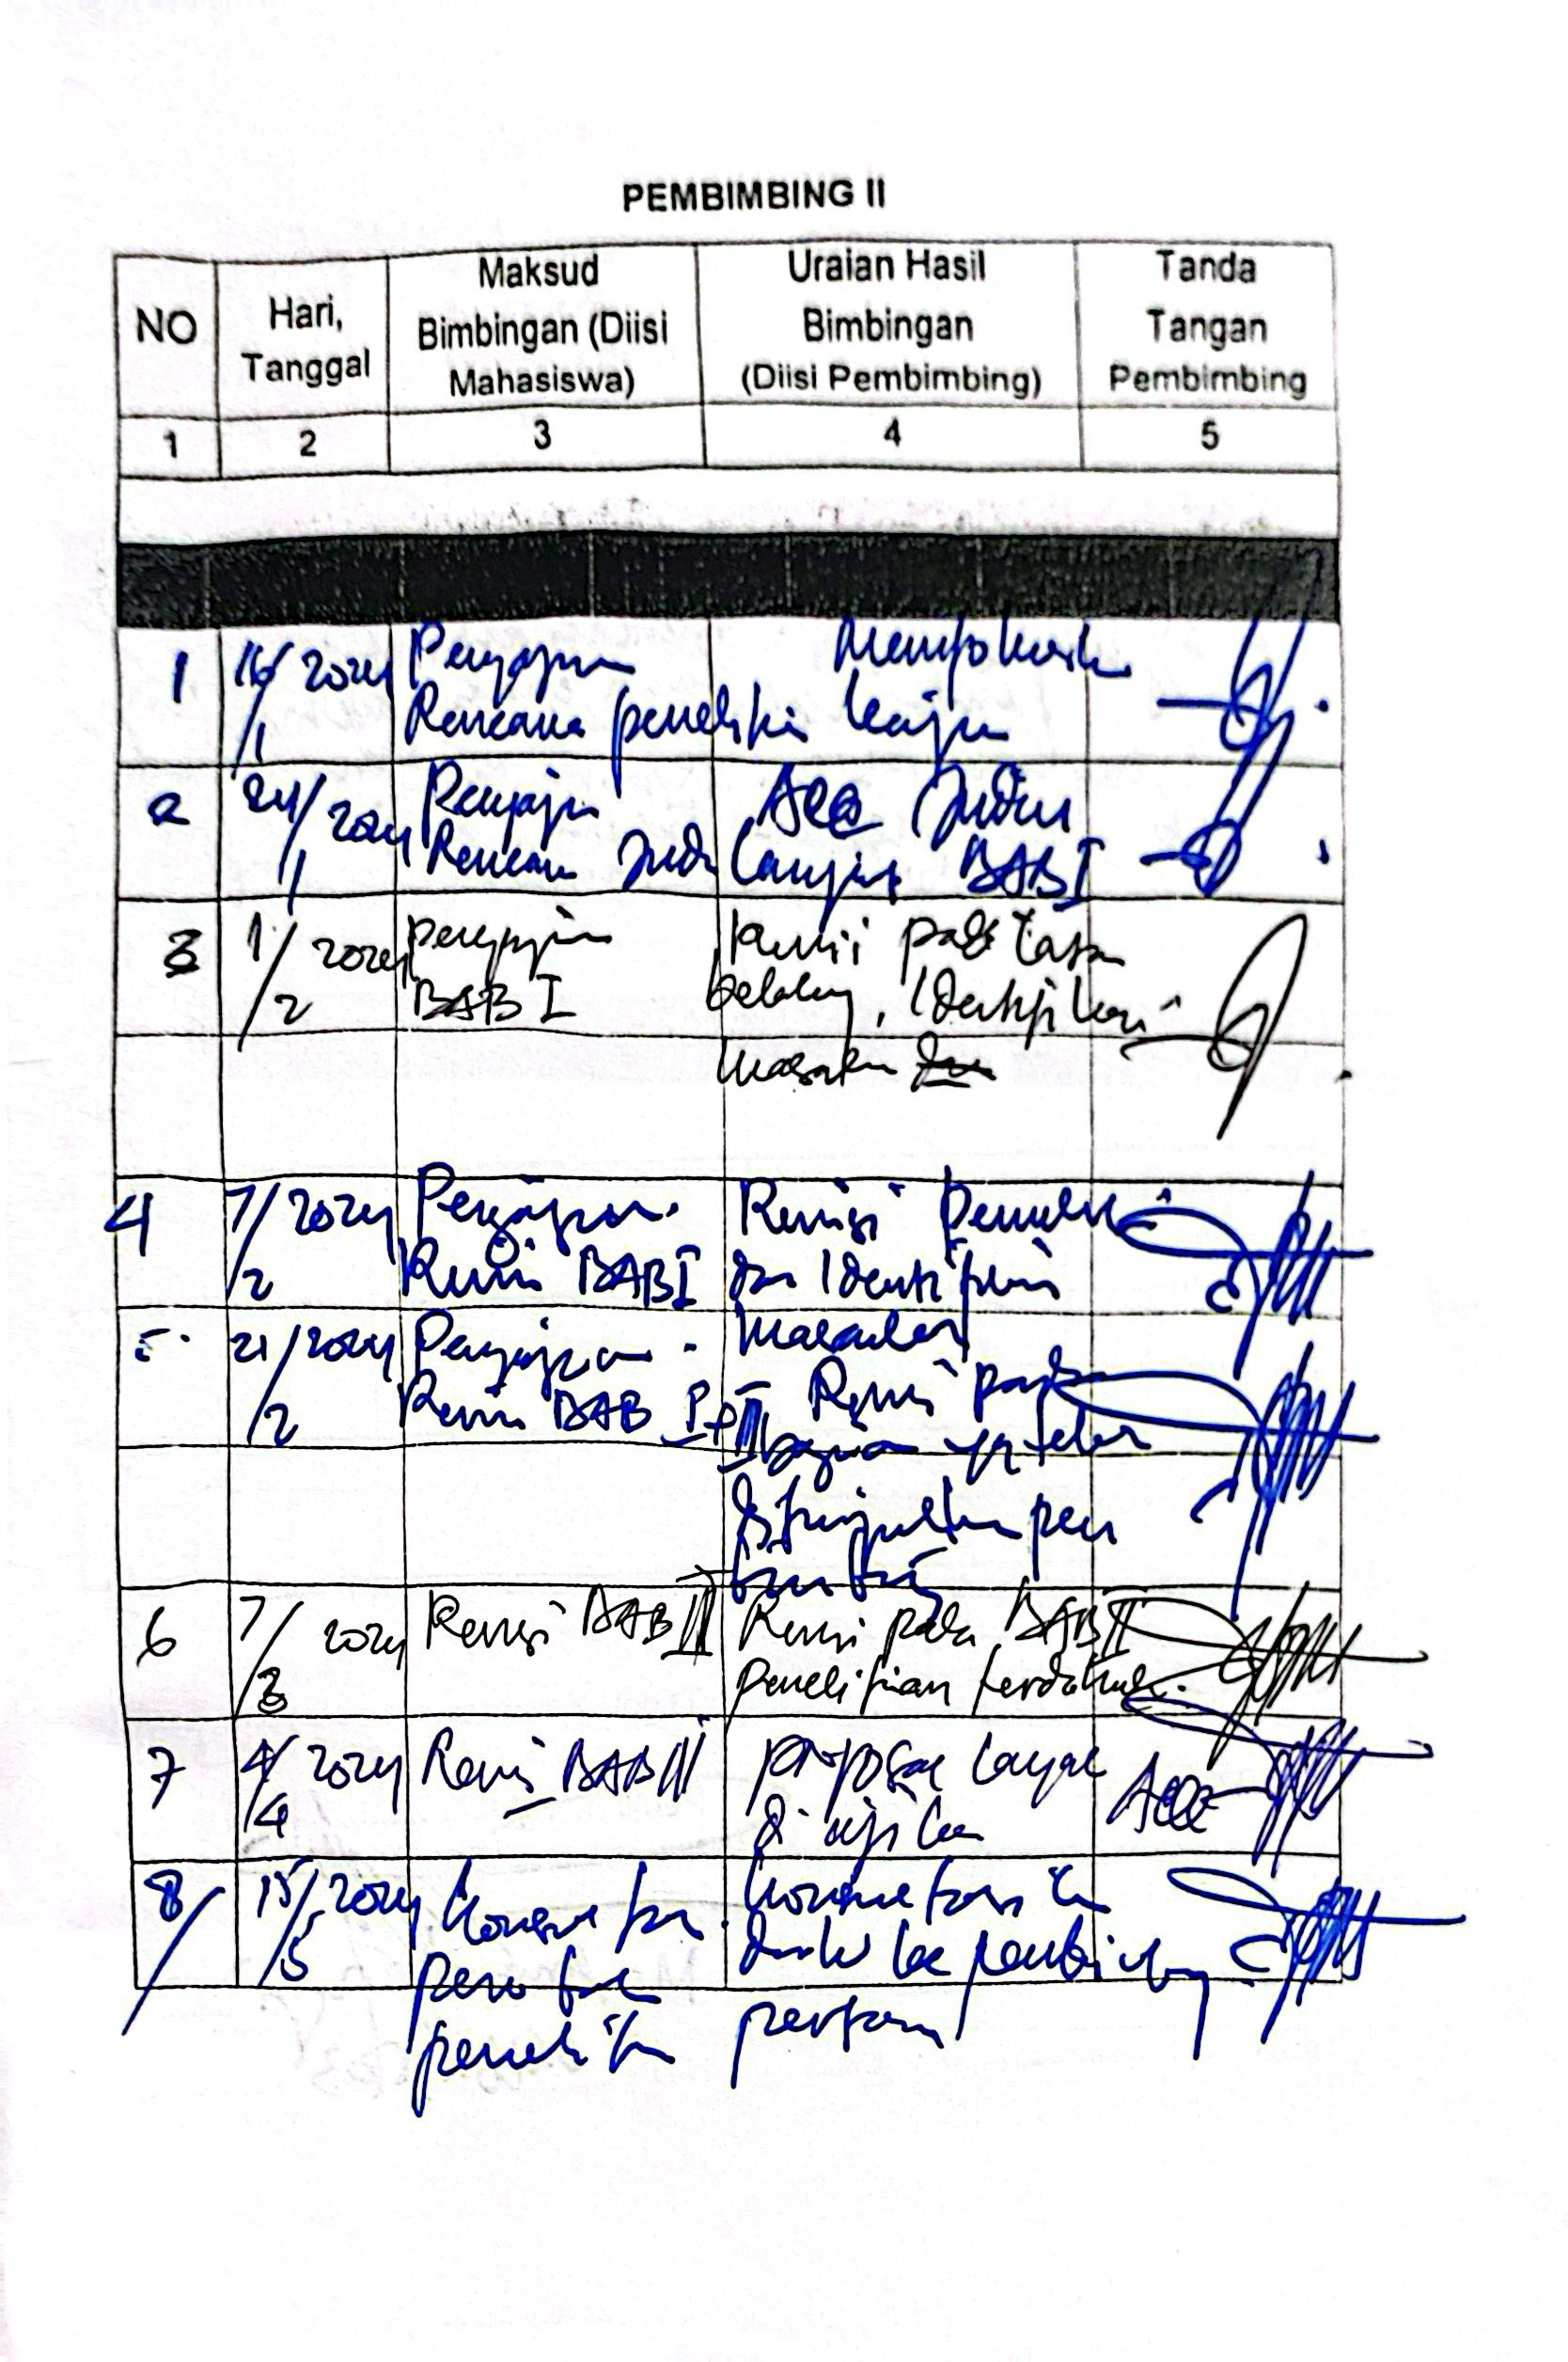 PEMBIMBING II
NO
Hari,
Tanggal
Maksud
Bimbingan (Diisi
Mahasiswa)
Uraian Hasil
Bimbingan
(Diisi Pembimbing)
Tanda
Tangan
Pembimbing
1 2 3 4 5
1 16/1 2024
Pengajuan
Rencana penelitian
2 24/1 2024
Pengajuan
Rencana Judul
Acc Judul
Lanjut BAB I
3 1/2 2024
pengajuan
BAB I
Revisi pada Latar
belakang, Identifikasi
masalah
4 7/2 2024
Pengajuan
Revisi BAB I
Revisi Penulisan
dan Identifikasi
Masalah
5. 21/2 2024
Pengajuan
Revisi BAB I + II
Revisi pada
bagian yg telah
6 7/3 2024
Revisi BAB II
Revisi pada BAB II
penelitian terdahulu.
7 4/4 2024
Revisi BAB III
proposal layak
diujikan
Acc
8 15/5 2024
penelitian